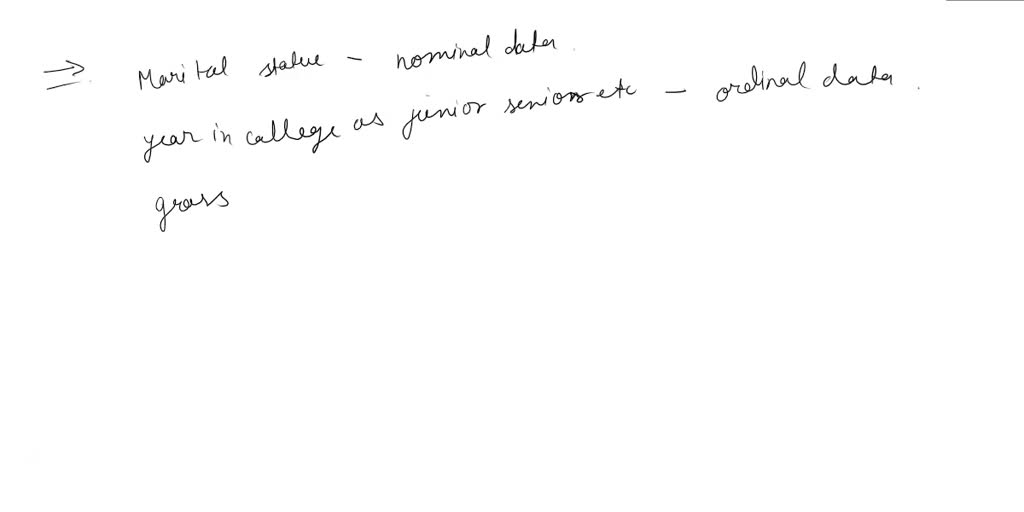 ⇒ Marital statue - nominal data.
year in callege as junior seniors etc - ordinal data.
grass